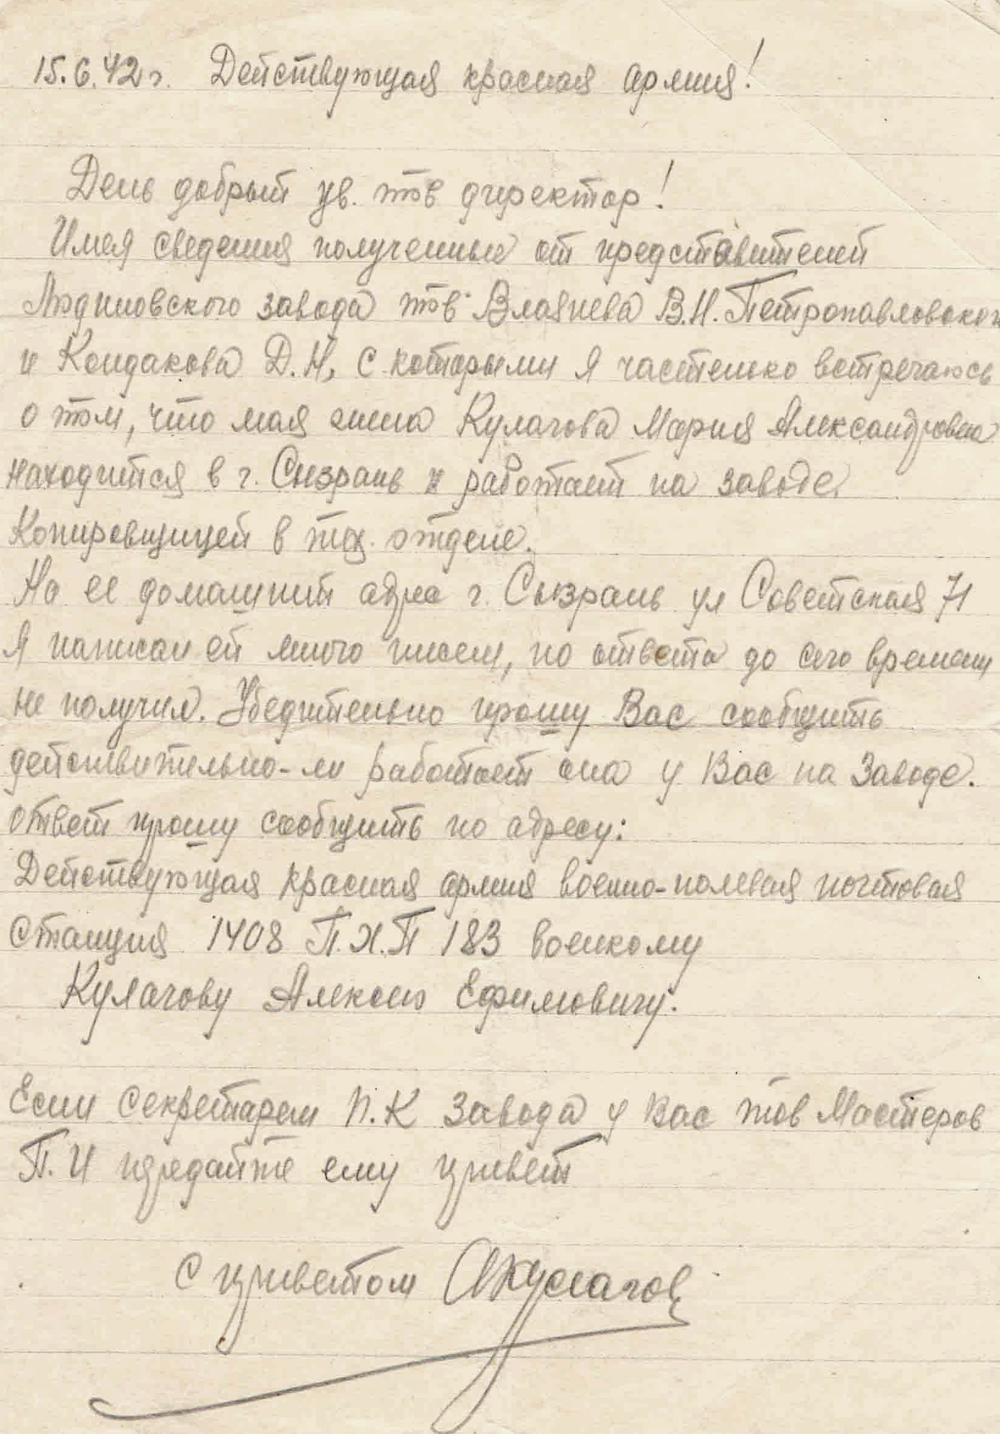 15.6.42г. Действующая красная армия!
День добрый ув. тов директор!
Имея сведения полученные от представителей
Людиновского завода тов. В.Н. Петропавловской
и Кондакова Д.Н, с которыми я частенько встречаюсь
о том, что моя жена Кулагова Мария Александровна
находится в г. Сызрань и работает на заводе
Копировщицей в тех. отделе.
На ее домашний адрес г. Сызрань ул Советская 71
Я написал ей много писем, но ответа до сего времени
не получил. Убедительно прошу Вас сообщить
действительно-ли работает она у Вас на Заводе.
Ответ прошу сообщить по адресу:
Действующая красная армия военно-полевая почтовая
Станция 1408 П.Х.П 183 военкому
Кулагову Алексею Ефимовичу.
Если секретарем П.К Завода у Вас тов Мастеров
П.И передайте ему привет
С приветом АКулагов